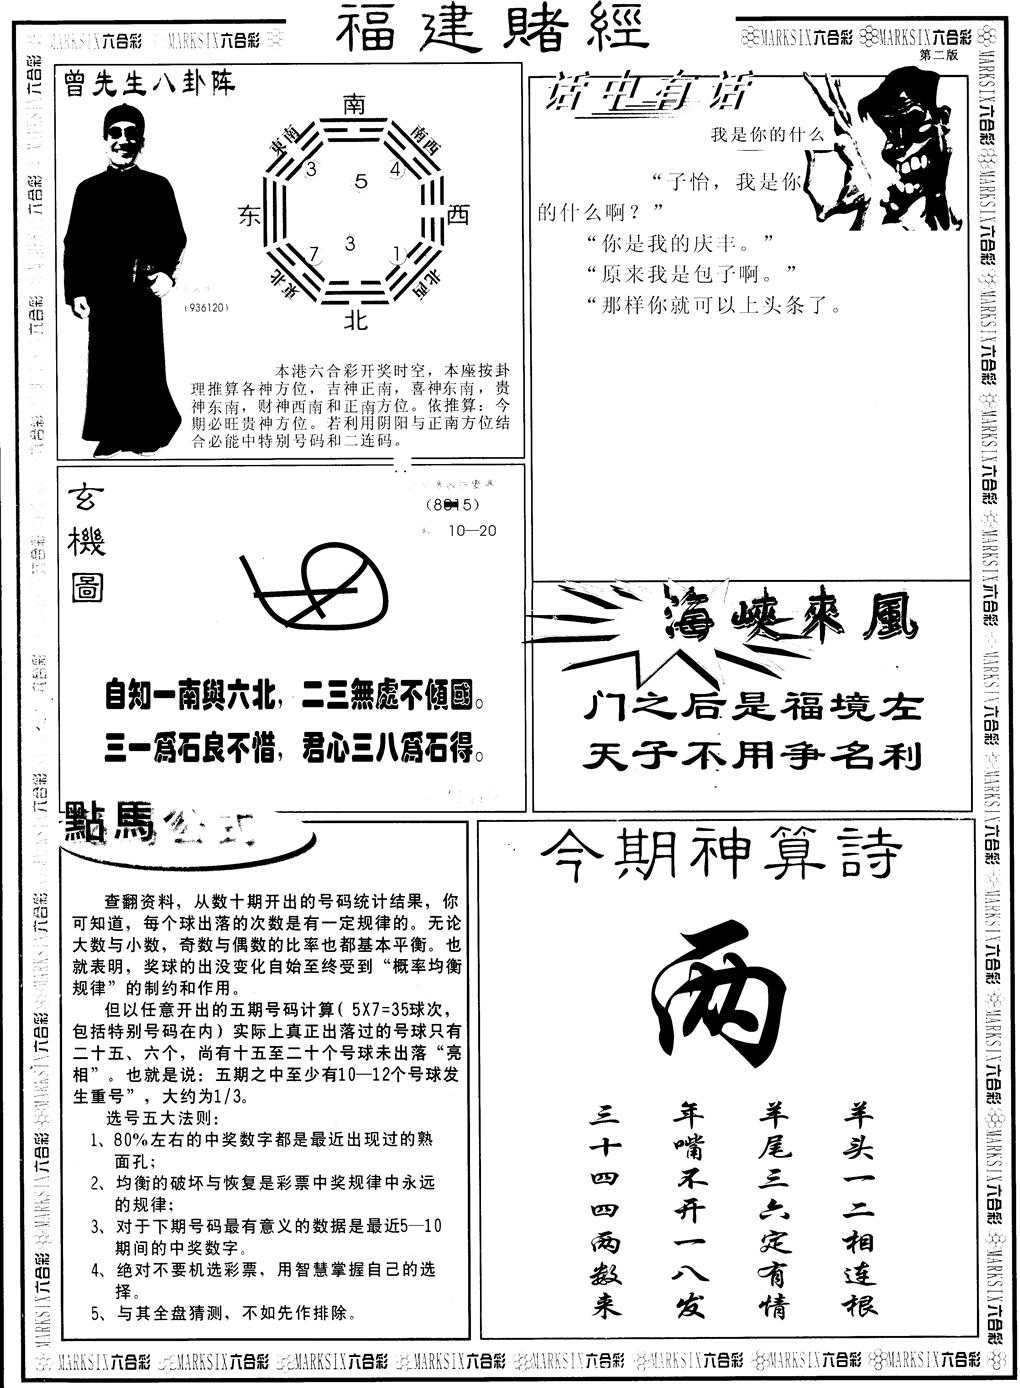 福建賭經
MARKSIX六合彩 MARKSIX六合彩
MARKSIX六合彩 MARKSIX六合彩
第二版
曾先生八卦阵
南
東南 南西
3 4
5
东 西
3
7 1
東北 北西
北
(936120)
本港六合彩开奖时空，本座按卦
理推算各神方位，吉神正南，喜神东南，贵
神东南，财神西南和正南方位。依推算：今
期必旺贵神方位。若利用阴阳与正南方位结
合必能中特别号码和二连码。
话中有话
我是你的什么
“子怡，我是你
的什么啊？”
“你是我的庆丰。”
“原来我是包子啊。”
“那样你就可以上头条了。
玄機圖
10—20
自知一南與六北，二三無處不傾國。
三一爲石良不惜，君心三八爲石得。
海峽來風
门之后是福境左
天子不用争名利
點馬公式
查翻资料，从数十期开出的号码统计结果，你
可知道，每个球出落的次数是有一定规律的。无论
大数与小数，奇数与偶数的比率也都基本平衡。也
就表明，奖球的出没变化自始至终受到“概率均衡
规律”的制约和作用。
但以任意开出的五期号码计算( 5X7=35球次，
包括特别号码在内）实际上真正出落过的号球只有
二十五、六个，尚有十五至二十个号球未出落“亮
相”。也就是说：五期之中至少有10—12个号球发
生重号”，大约为1/3。
选号五大法则：
1、80%左右的中奖数字都是最近出现过的熟
面孔；
2、均衡的破坏与恢复是彩票中奖规律中永远
的规律；
3、对于下期号码最有意义的数据是最近5—10
期间的中奖数字。
4、绝对不要机选彩票，用智慧掌握自己的选
择。
5、与其全盘猜测，不如先作排除。
今期神算詩
两
羊头一二相连根
羊尾三六定有情
年嘴不开一八发
三十四四两数来
MARKSIX六合彩 MARKSIX六合彩 MARKSIX六合彩 MARKSIX六合彩 MARKSIX六合彩 MARKSIX六合彩 MARKSIX六合彩 MARKSIX六合彩